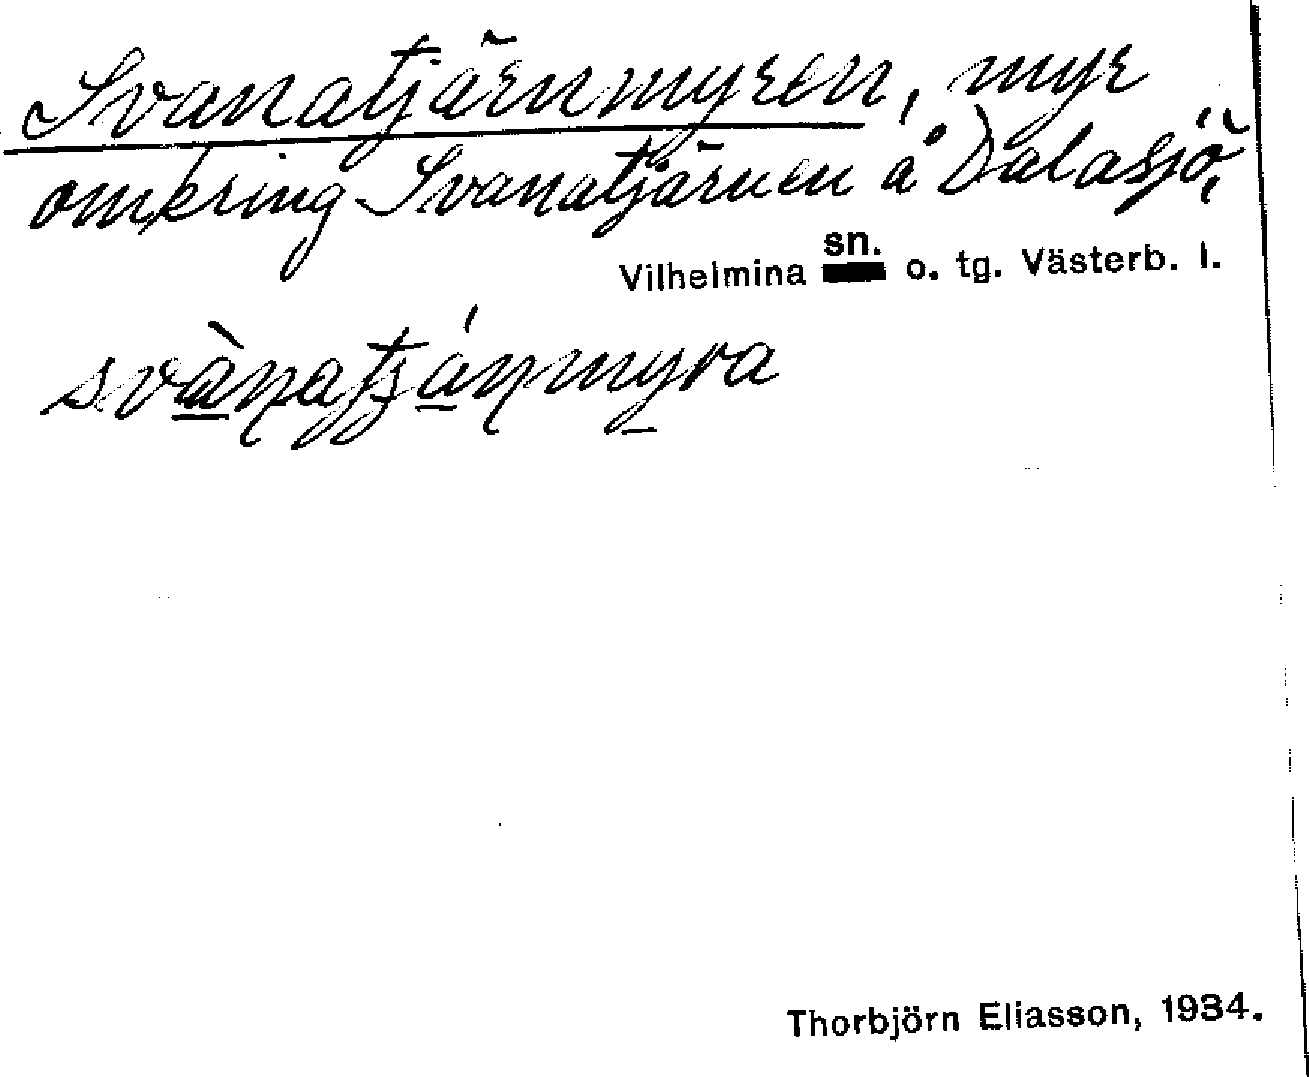 Svanatjärnmyren, myr
omkring Svanatjärnen å Dalasjö,
Vilhelmina sn. o. tg. Västerb. l.
svànatjánmyra
Thorbjörn Eliasson, 1934.